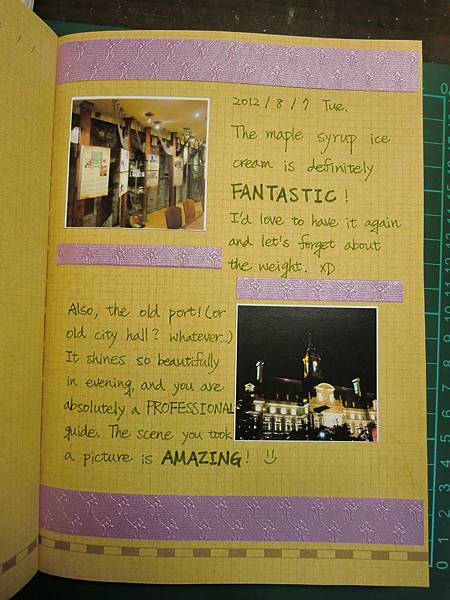 2012/8/7 Tue.
The maple syrup ice
cream is definitely
FANTASTIC!
I'd love to have it again
and let's forget about
the weight. XD
Also, the old port! (or
old city hall? whatever...)
It shines so beautifully
in evening, and you are
absolutely a PROFESSIONAL
guide. The scene you took
a picture is AMAZING!
0 1 2 3 4